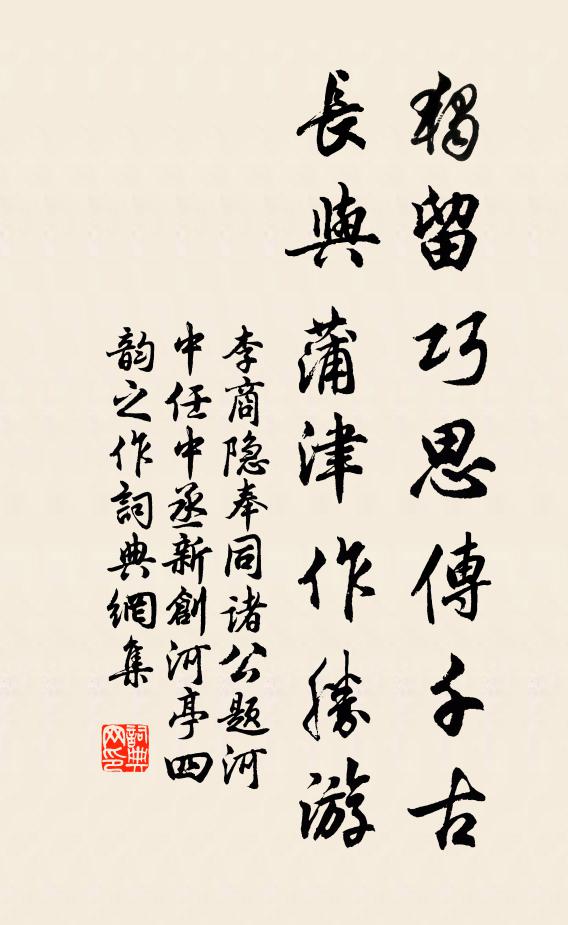 獨留巧思傳千古
長與蒲津作勝游
李商隐奉同諸公题河
中任中丞新創河亭四
韵之作詞典網集
詞典
网印